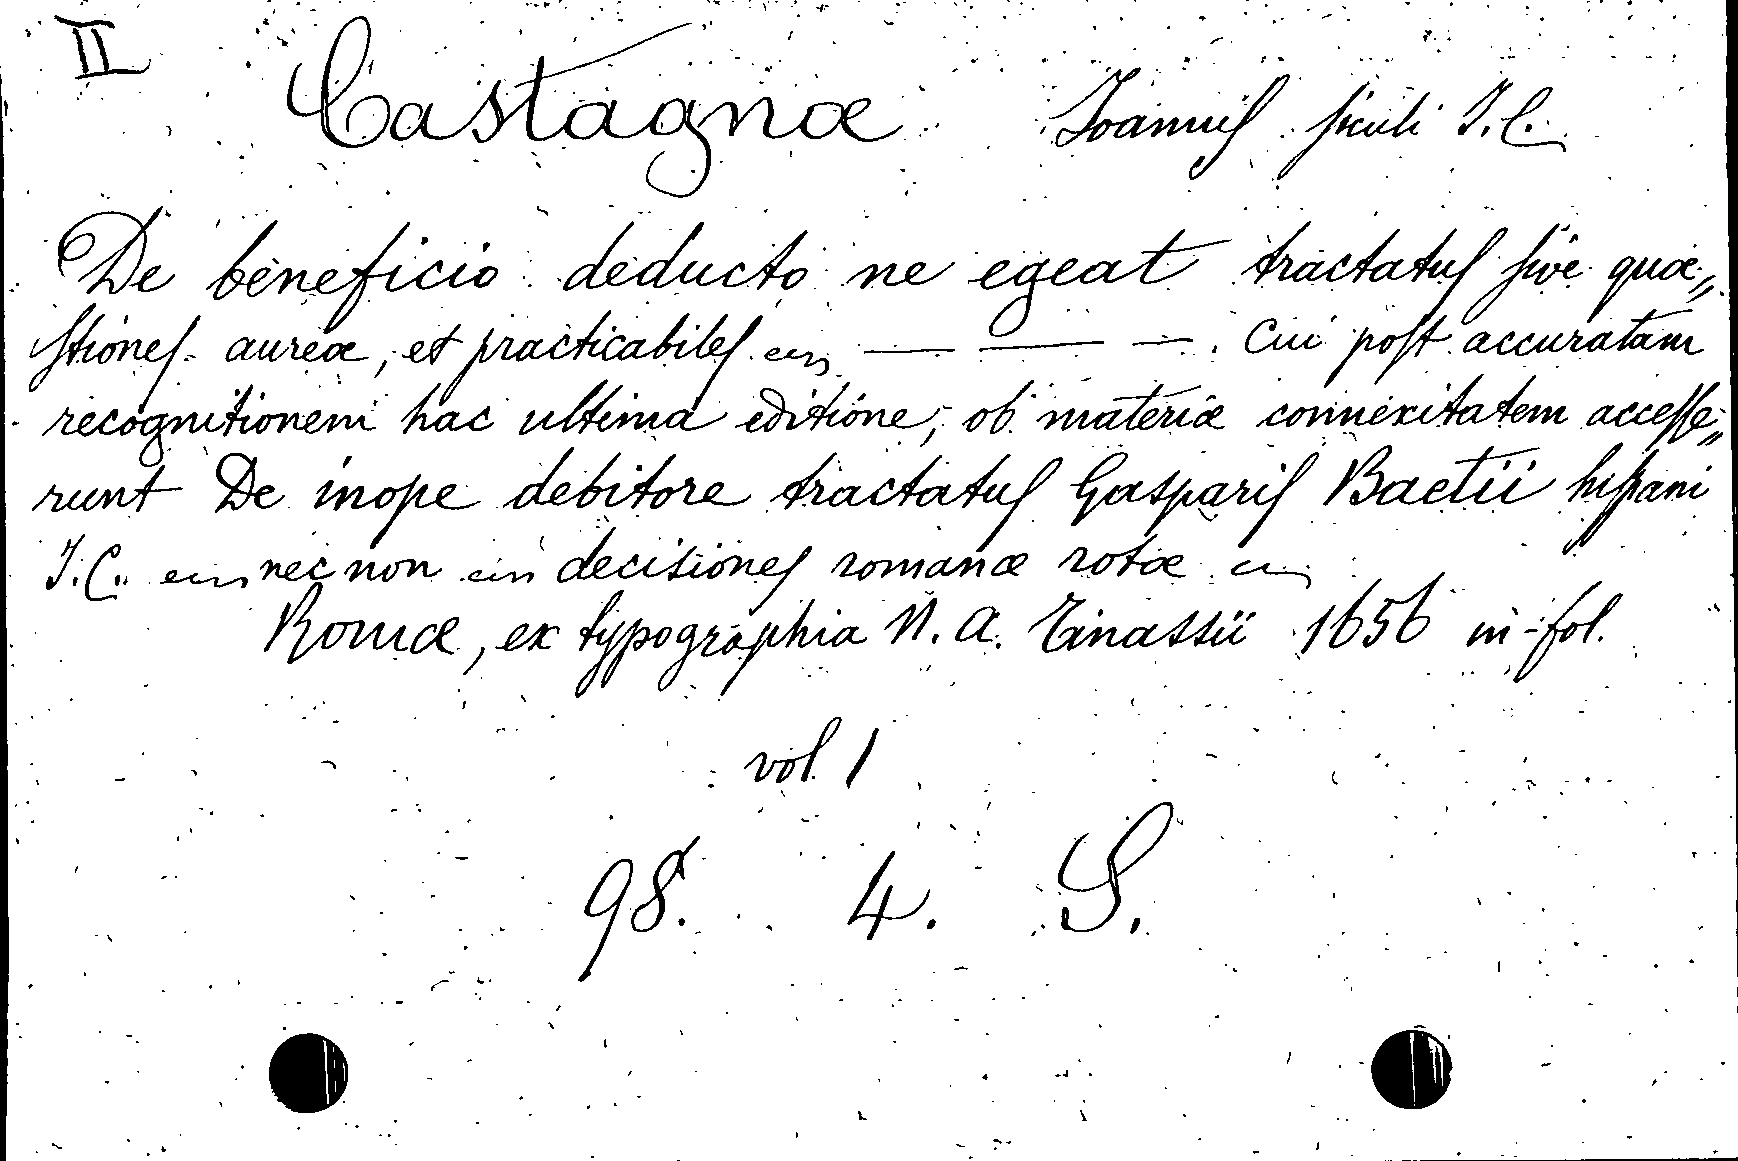 II
Castagnæ Joannis siculi J. C.
De beneficio deducto ne egeat tractatus sive quæ„
stiones aureæ, et practicabiles — — —. Cui post accuratam
recognitionem hac ultima editione, ob materiæ connexitatem accesse„
runt De inope debitore tractatus Gasparis Baetii hispani
J. C. nec non decisiones romanæ rotæ
Romæ, ex typographia N. A. Tinassii 1656 in-fol.
vol. 1
98. 4. S.